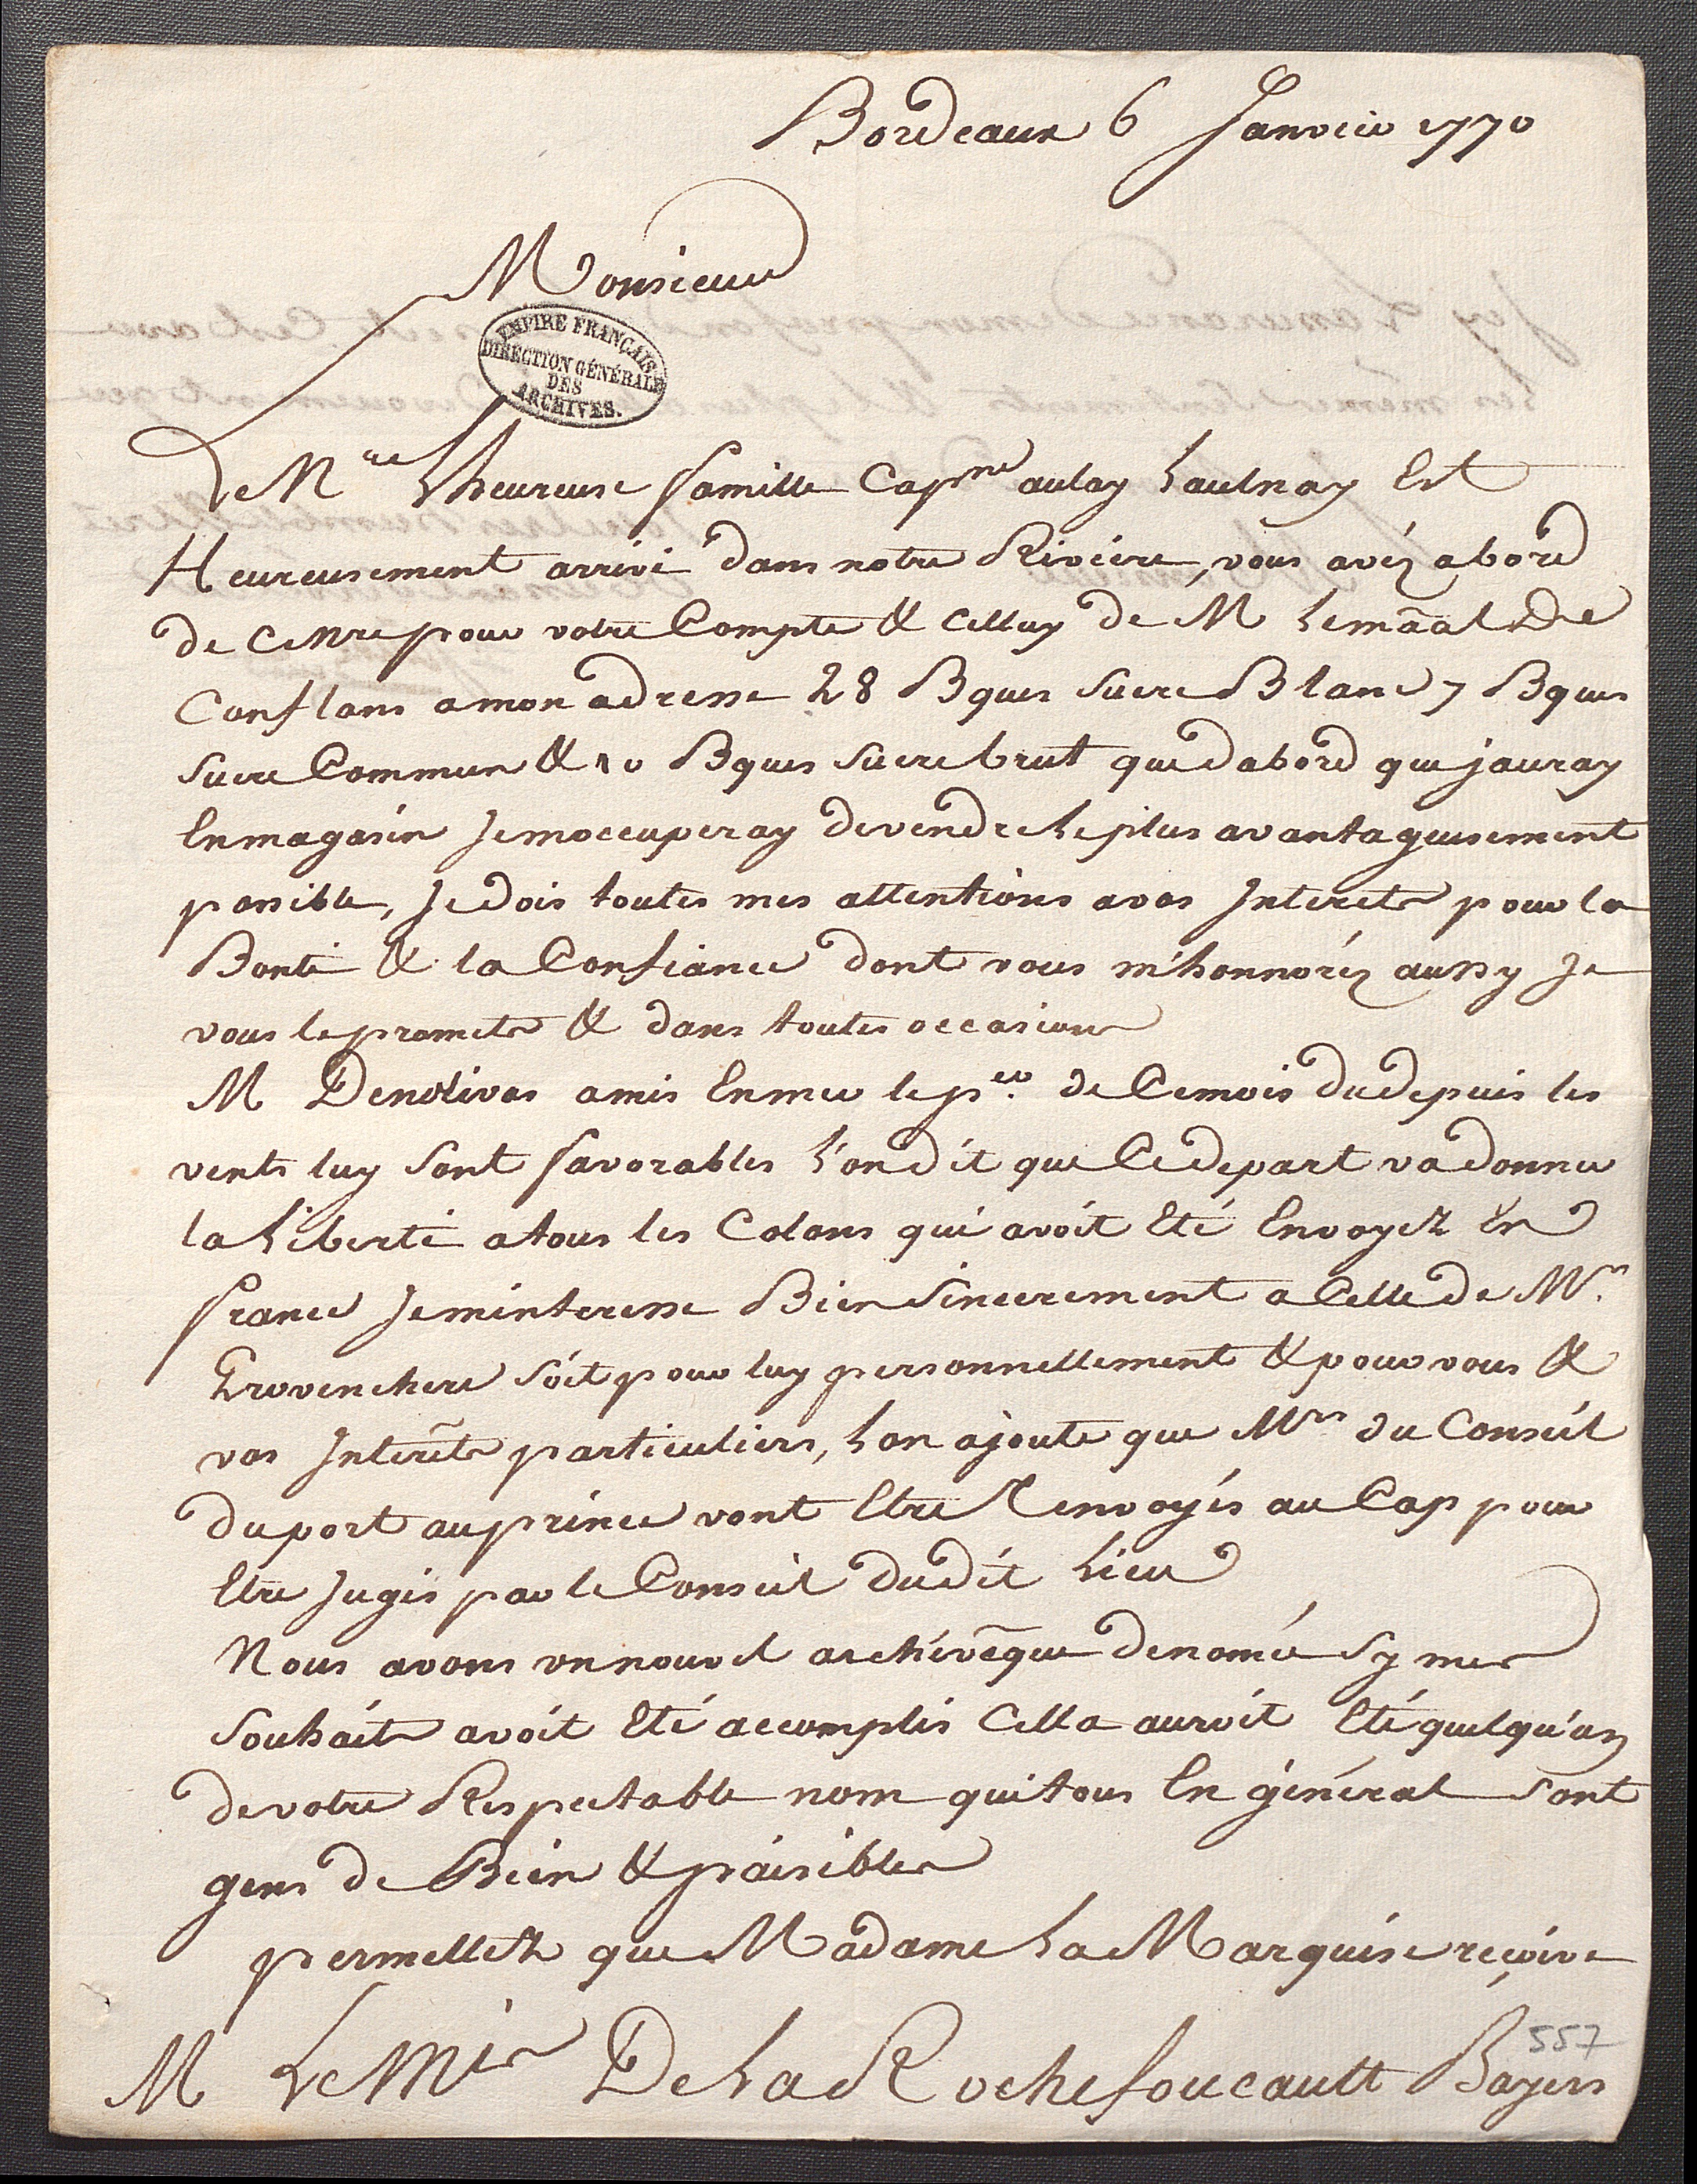 Bordeaux 6 Janvier 1770
Monsieur
EMPIRE FRANÇAIS
DIRECTION GÉNÉRALE
DES
ARCHIVES.
Le N.re Lheureuse famille Cap.ne aulay Laulnay Est
Heureusement arrivé dans notre Riviere, vous avéz abord
de ce Nre pour votre Compte & celluy de M Le mãal De
Conflans a mon adresse 28 Bques sucre Blanc 7 Bques
sucre Commun & 10 Bques sucre brut que dabord que jauray
En magasin Je moccuperay de vendre le plus avantageusement
possible, Je dois toutes mes attentions a vos Interets pour la
Bonté & la Confiance dont vous m'honnoréz aussy Je
vous le promets & dans toutes occasions
M Denolivos a mis En mer le p.er de Ce mois du depuis les
vents luy sont favorables L'on dit que Ce depart va donner
la Liberté a tous les Colons qui avoit Eté Envoyez En
france Je minteresse Bien sincerement a Celle de Mr.
Provenchere soit pour luy personnellement & pour vous &
vos Interêts particuliers, Lon ajoute que Mrs du Conseil
du port au prince vont Etre Renvoyés au Cap pour
Etre Jugés par le Conseil dudit Lieu
Nous avons un nouvel archévêque denomé sy mes
souhaits avoit Eté accomplis Cella auroit Eté quelqu'un
de votre Respectable nom qui tous En général sont
gens de Bien & paisibles
permettez que Madame La Marquise reçoive
M Le Mis De La Rochefoucault Bayers
557